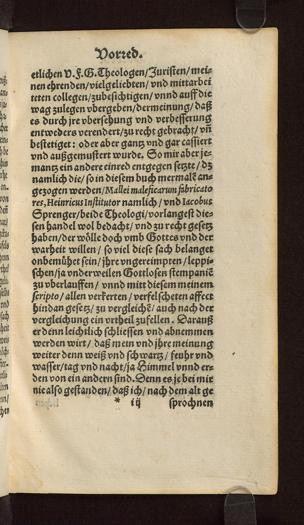 Vorred.
etlichen V. F. G. Theologen/ Juristen/ mei-
nen ehrenden/ vielgeliebten/ vnd mitarbei
teten collegen/ zubesichtigen/ vnnd auff die
wag zulegen vbergeben/ der meinung/ daß
es durch jre vbersehung vnd verbesserung
entweders verendert/ zu recht gebracht/ vñ
bestetiget: oder aber gantz vnd gar cassiert
vnd außgemustert wurde. So mir aber je-
mantz ein andere einred entgegen setzte/ dz
namlich die/ so in diesem buch mermalẽ an-
gezogen werden/ Mallei maleficarum fabricato
res, Heinricus Institutor namlich/ vnd Iacobus
Sprenger/ beide Theologi/ vorlangest die-
sen handel wol bedacht/ vnd zu recht gesetzt
haben/ der wölle doch vmb Gottes vnd der
warheit willen/ so viel diese sach belanget
onbemühet sein/ jhre vngereimpten/ leppi-
schen/ ja vnderweilen Gottlosen stempaniẽ
zu vberlauffen/ vnnd mitt diesem meinem
scripto/ allen verkerten/ verfelscheten affect
hindan gesetz/ zu vergleichẽ/ auch nach der
vergleichung ein vrtheil zufellen. Darauß
er denn leichtlich schliessen vnd abnemmen
werden wirt/ daß mein vnd jhre meinung
weiter denn weiß vnd schwartz/ feuhr vnd
wasser/ tag vnd nacht/ ja Himmel vnnd er-
den von ein andern sind. Denn es je bei mir
nie also gestanden/ daß ich/ nach dem alt ge
* iij sprochnen